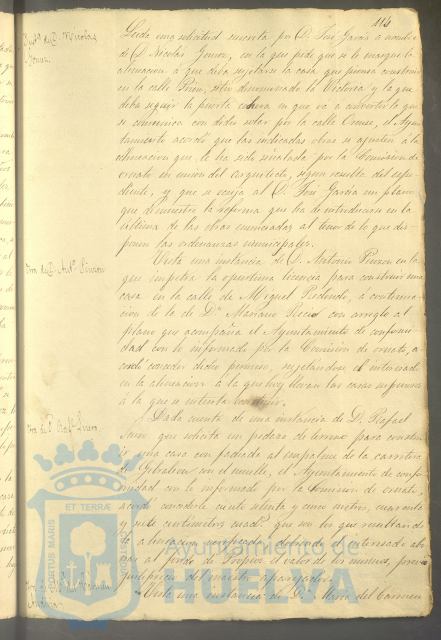 114
Inst.ª de D. Nicolas
Gomez.
Leida una solicitud suscrita por D. José Garcia a nombre
de D. Nicolas Gomez, en la que pide que se le marque la
alineacion á que deba sujetarse la casa que piensa construir
en la calle sitio denominado la Victoria y la que
deba seguir la puerta en que va a convertir la que
se comunica con dicho solar por la calle el Ayun-
tamiento acordó que las indicadas obras se ajusten á la
alineacion que le ha sido señalada por la Comision de
ornato en union del arquitecto, segun resulta del espe-
diente, y que se exija al D. José Garcia un plano
que demuestre la reforma que ha de introducirse en la
última de las obras enunciadas al tenor de lo que dis-
ponen las ordenanzas municipales.
Otra de D. Ant.º Pinzon
Vista una instancia de D. Antonio Pinzon en la
que impetra la oportuna licencia para construir una
casa en la calle de Miguel Redondo, á continua-
cion de la de D.ⁿ Mariano con arreglo al
plano que acompaña el Ayuntamiento de conformi-
dad con lo informado por la Comision de ornato, a-
cordó conceder dicho permiso, sujetandose el interesado
en la alineacion á la que hoy llevan las casas
á la que se intenta construir.
Otra de D. Raf.l
Dada cuenta de una instancia de D. Rafael
que solicita un pedazo de terreno para constru-
ir una casa con fachada al empalme de la carretera
de Gibraleon con el muelle, el Ayuntamiento de confor-
midad con lo informado por la Comision de ornato,
acordó concederle ciento setenta y cinco metros, cuarenta
y siete centimetros cuad.s que son los que resultan de
la alineacion debiendo el interesado abo-
nar al fondo de Propios el valor de los mismos, previo
justiprecio del maestro aparejador.
Vista una instancia de D.ª Maria del Carmen
ET TERRÆ
PORTUS MARIS
CUSTODIA
Ayuntamiento de
HUELVA